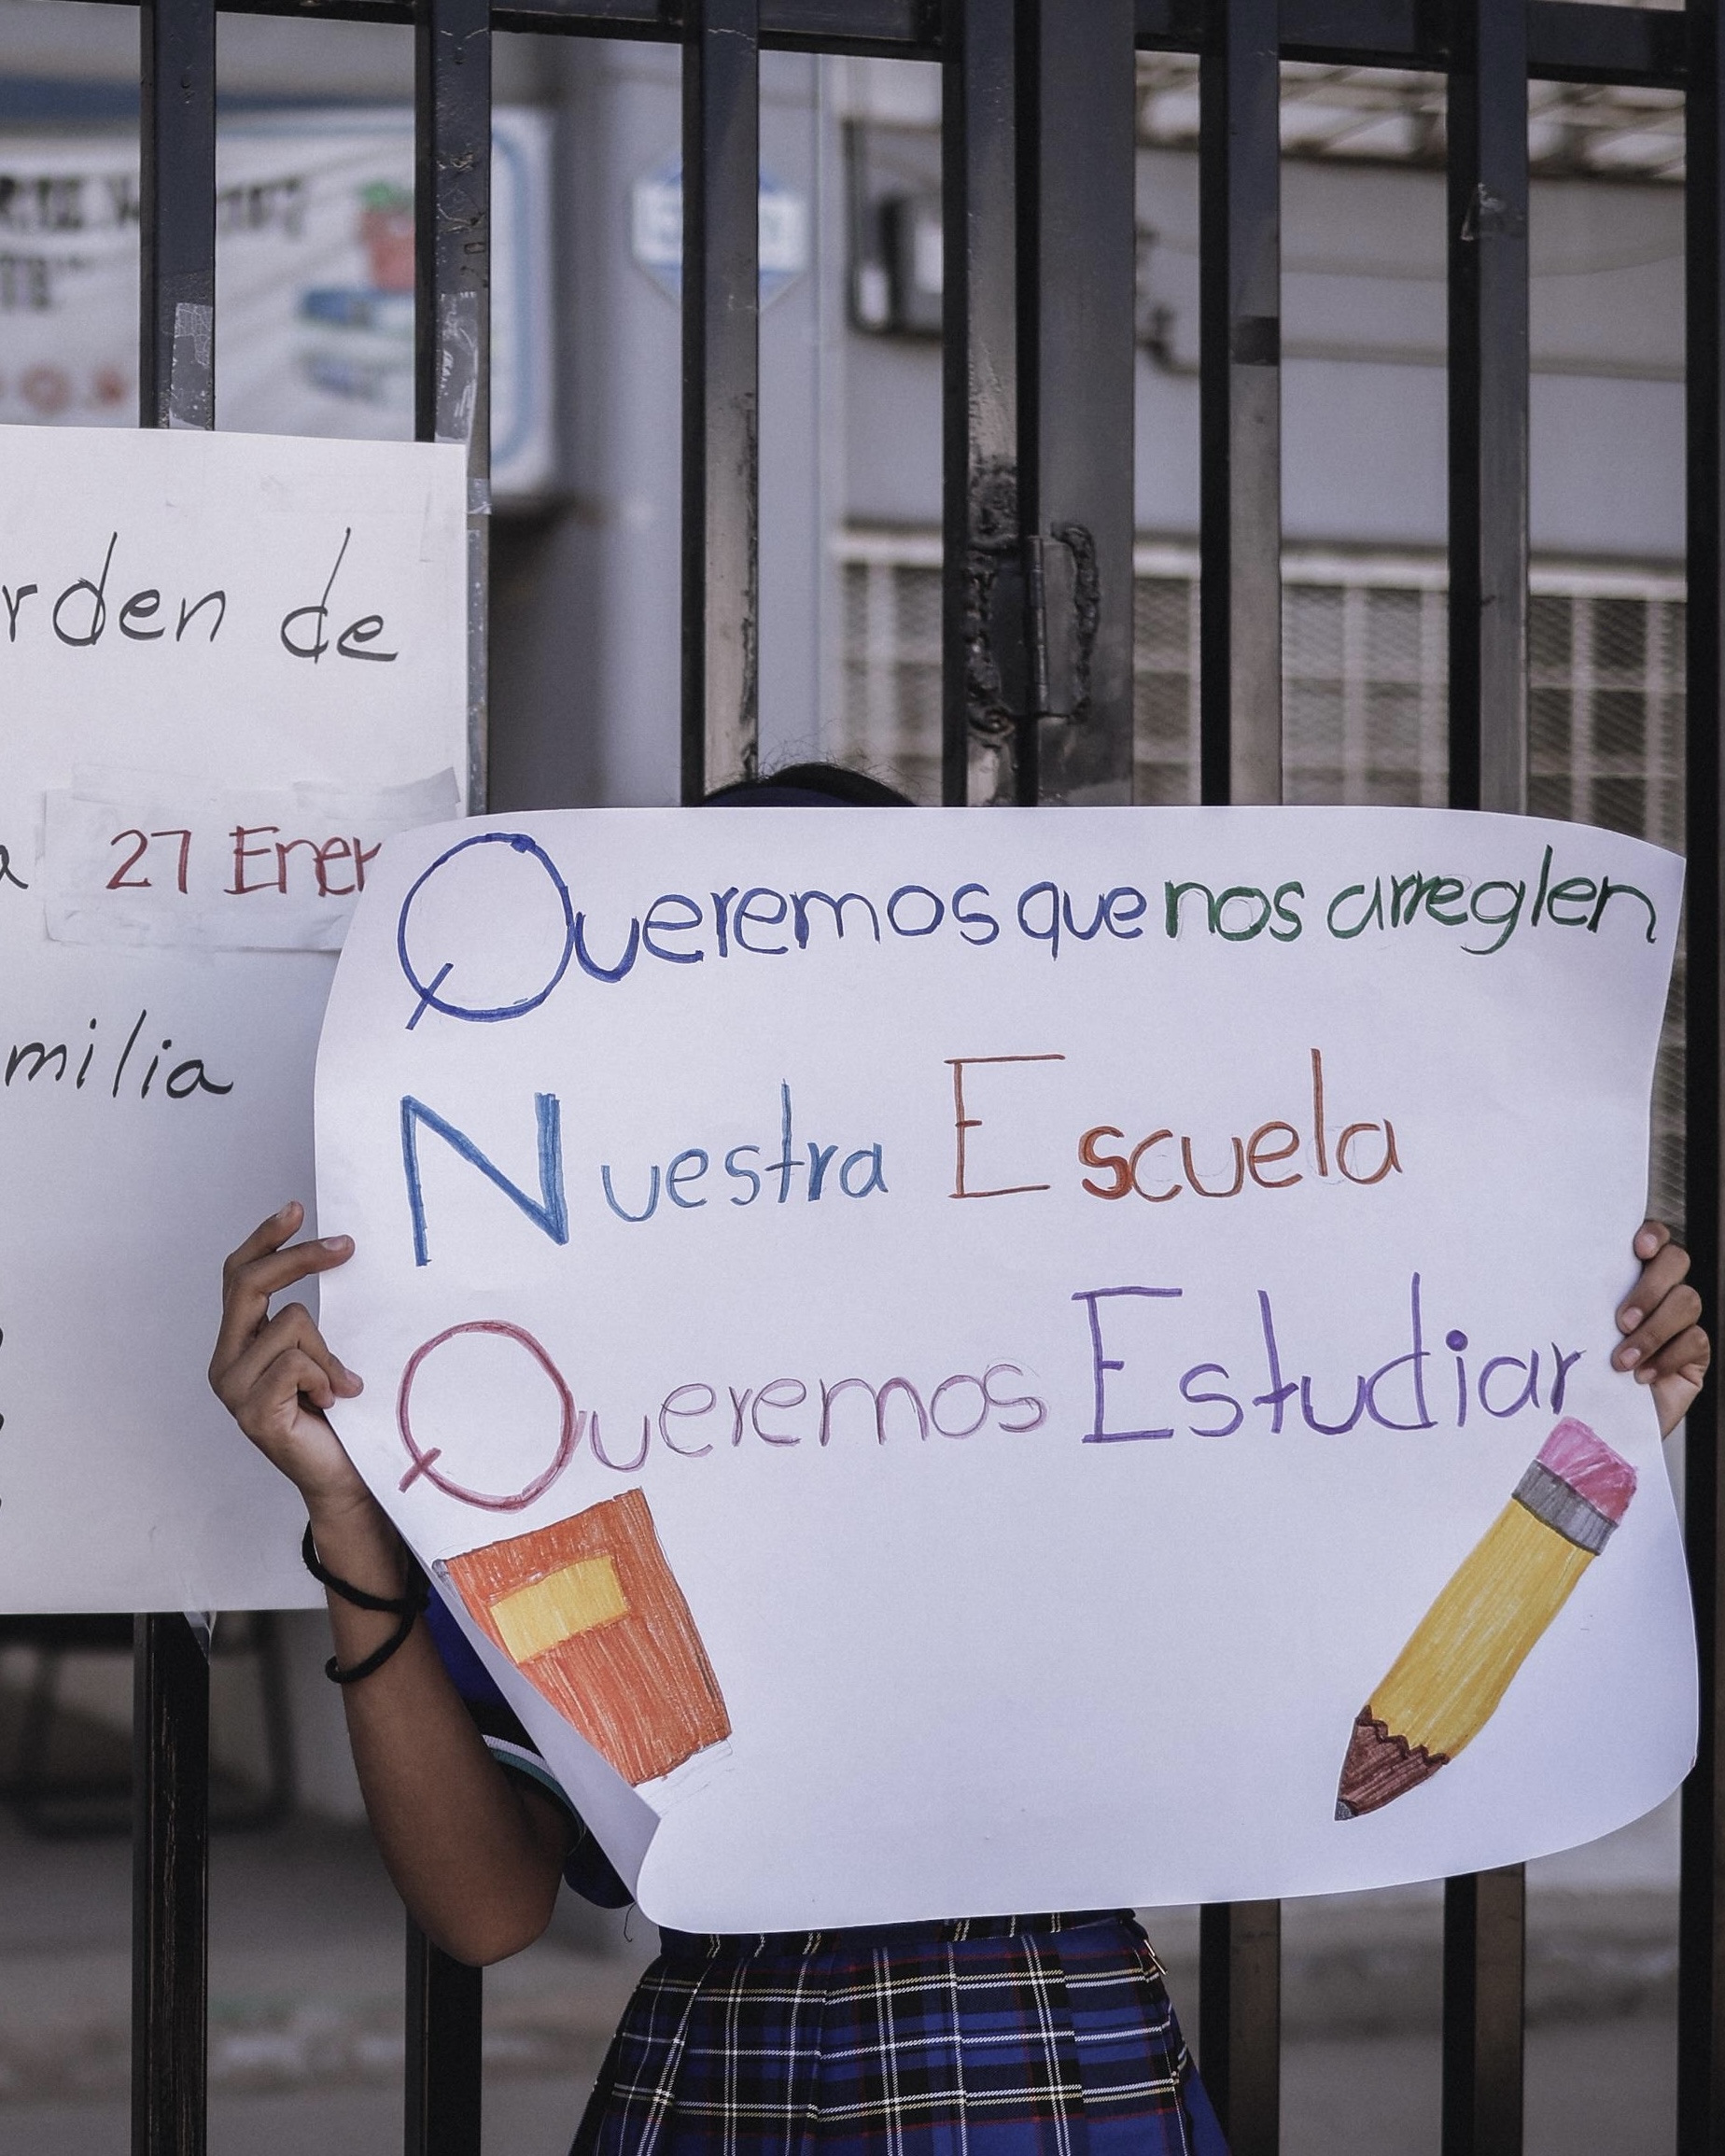 rden de
a 27 Ener
milia
Queremos que nos arreglen
Nuestra Escuela
Queremos Estudiar